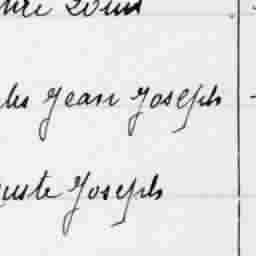 Louis
les Jean Joseph
uste Joseph